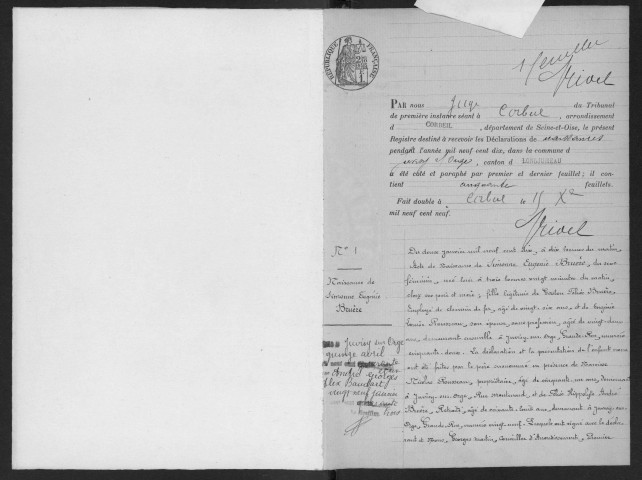 RÉPUBLIQUE FRANÇAISE
1er feuillet
PAR nous Juge du Tribunal
de première instance séant à Corbeil, arrondissement
d CORBEIL, département de Seine-et-Oise, le présent
Registre destiné à recevoir les Déclarations de naissances
pendant l'année mil neuf cent dix, dans la commune d
Juvisy s/ Orge, canton d LONGJUMEAU
a été coté et paraphé par premier et dernier feuillet; il con-
tient cinquante feuillets.
Fait double à Corbeil le 15 Xbre
mil neuf cent neuf.
N° 1
Naissance de
Simonne Eugénie
Bruère
Juvisy sur Orge
quinze avril
André Georges
Alex Baudart
vingt neuf janvier
Du deux janvier mil neuf cent dix, à dix heures du matin
Acte de naissance de Simonne Eugénie Bruère, du sexe
féminin, née hier à trois heures vingt minutes du matin,
chez ses père et mère; fille légitime de Gaston Félix Bruère,
Employé de chemin de fer, âgé de vingt-six ans, et de Eugénie
Louise Rousseau, son épouse, sans profession, âgée de vingt-deux
ans, demeurant ensemble à Juvisy-sur-Orge, Grande-Rue, numéro
cinquante-deux. La déclaration et la présentation de l'enfant nous
ont été faites par le père susnommé en présence de
Nicolas Rousseau, propriétaire, âgé de cinquante-six ans, demeurant
à Juvisy-sur-Orge, Rue Montessuy, et de Félix Hippolyte André
Bruère, Retraité, âgé de soixante-trois ans, demeurant à Juvisy-sur-
Orge, Grande-Rue, numéro vingt-neuf. Lesquels ont signé avec le décla-
rant et Nous, Georges Martin, Conseiller d'Arrondissement, Premier